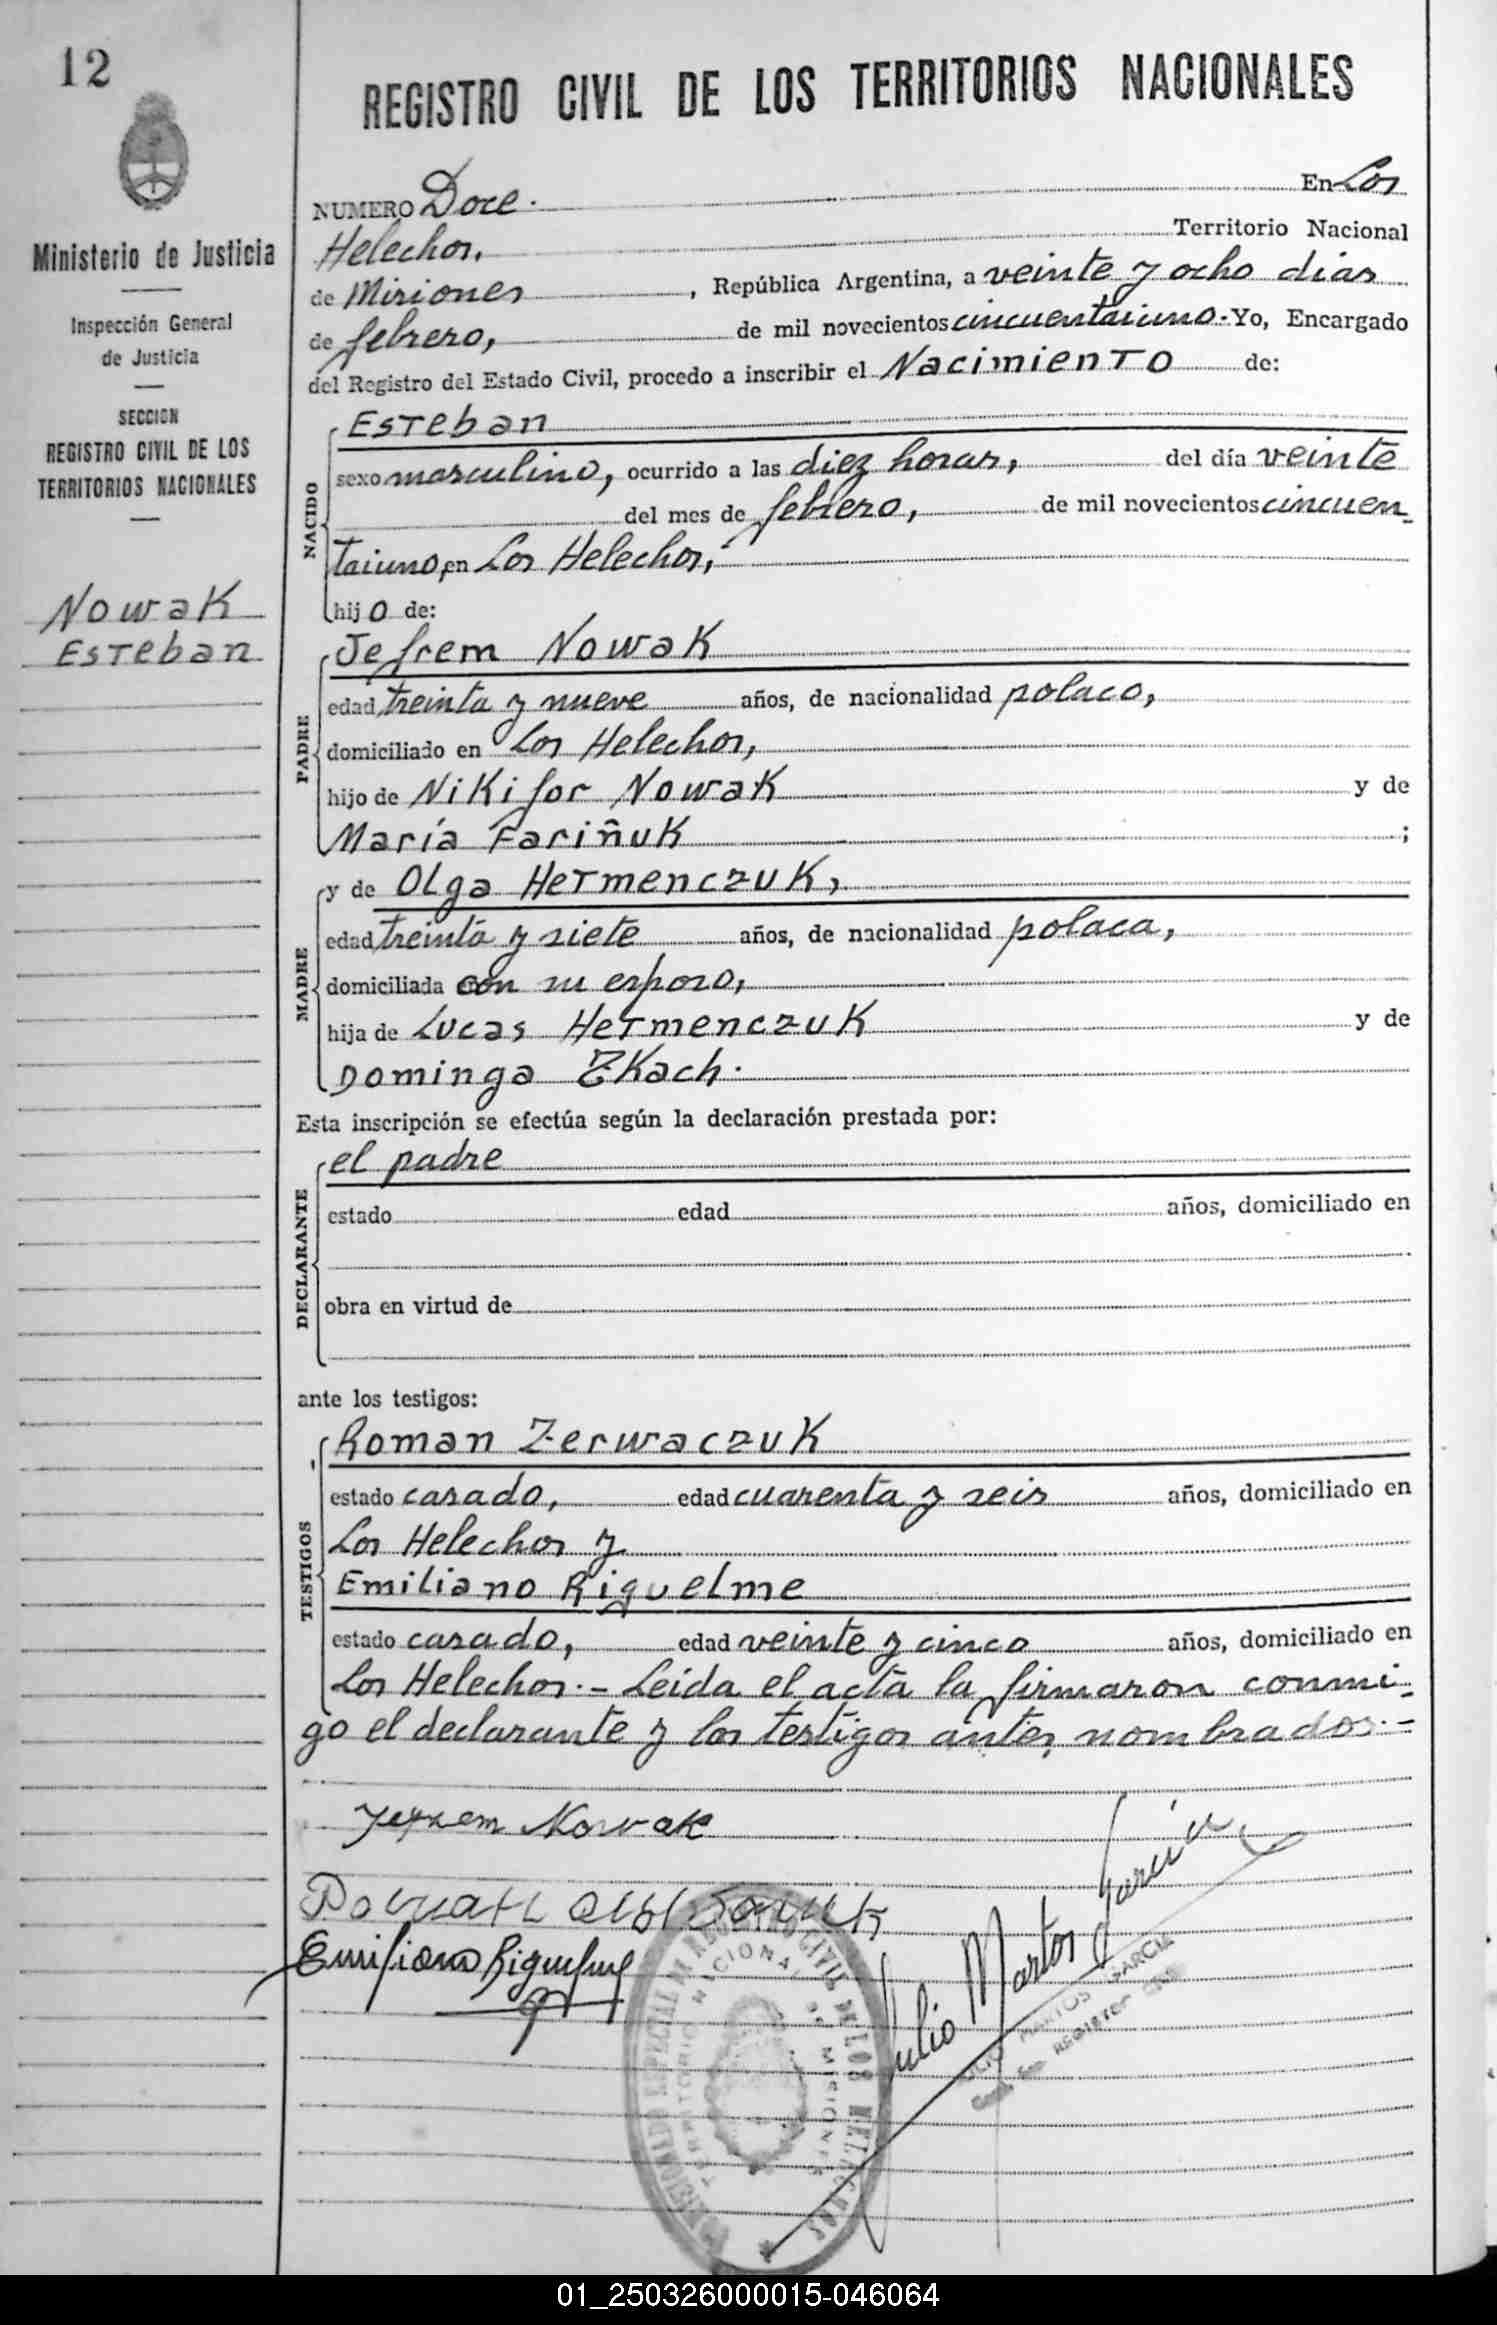 12
REGISTRO CIVIL DE LOS TERRITORIOS NACIONALES
Ministerio de Justicia
Inspección General
de Justicia
SECCION
REGISTRO CIVIL DE LOS
TERRITORIOS NACIONALES
Nowak
Esteban
NUMERO Doce. En Los
Helechos, Territorio Nacional
de Misiones, República Argentina, a veinte y ocho dias
de febrero, de mil novecientos cincuentaiuno. Yo, Encargado
del Registro del Estado Civil, procedo a inscribir el Nacimiento de:
NACIDO
Esteban
sexo masculino, ocurrido a las diez horas, del día veinte
del mes de febrero, de mil novecientos cincuen-
taiuno, en Los Helechos,
hijo de:
PADRE
Jefrem Nowak
edad treinta y nueve años, de nacionalidad polaco,
domiciliado en Los Helechos,
hijo de Nikifor Nowak y de
María Fariñuk ;
MADRE
y de Olga Hermenczuk,
edad treinta y siete años, de nacionalidad polaca,
domiciliada con su esposo,
hija de Lucas Hermenczuk y de
Dominga Zkach.
Esta inscripción se efectúa según la declaración prestada por:
DECLARANTE
el padre
estado edad años, domiciliado en
obra en virtud de
ante los testigos:
TESTIGOS
Roman Zerwaczuk
estado casado, edad cuarenta y seis años, domiciliado en
Los Helechos y
Emiliano Riquelme
estado casado, edad veinte y cinco años, domiciliado en
Los Helechos.- Leida el acta la firmaron conmi-
go el declarante y los testigos antes nombrados.-
Nowak
Emiliano Riquelme
Julio Martos Garcia
MARTOS GARCIA
REGISTRO CIVIL DE LOS HELECHOS
TERRITORIO NACIONAL DE MISIONES
01_250326000015-046064